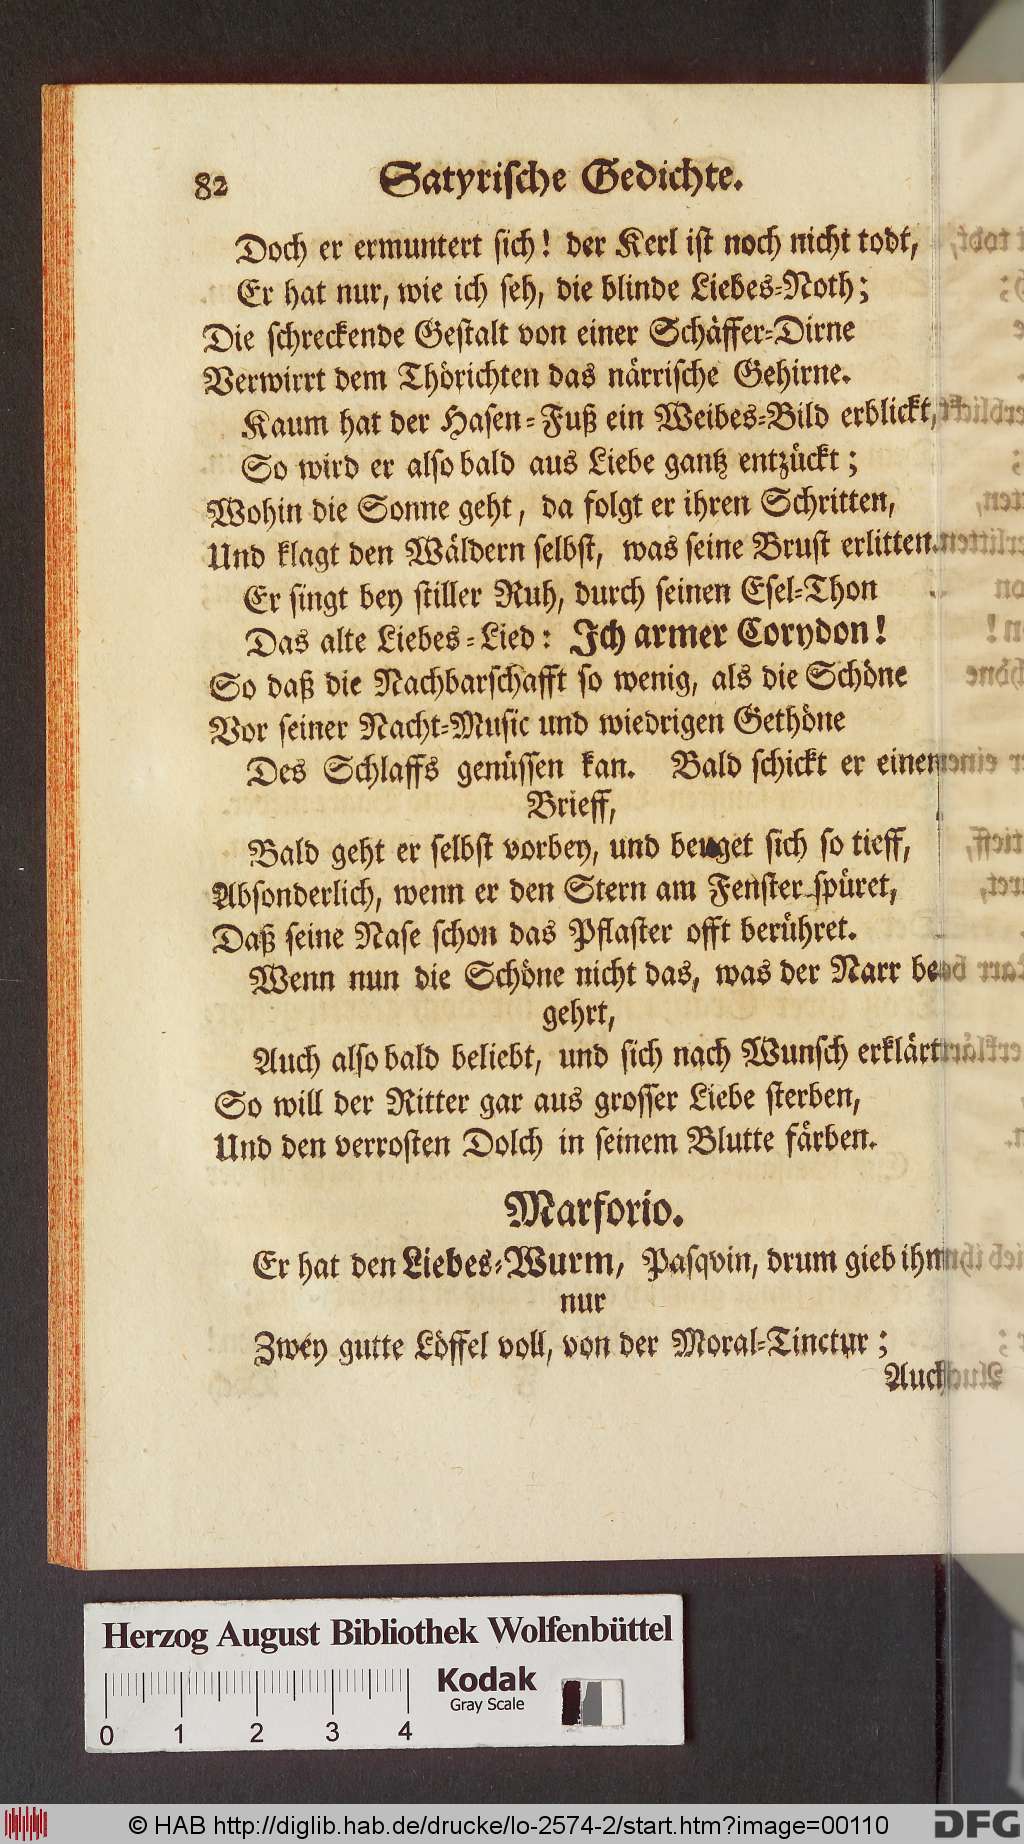 82 Satyrische Gedichte.
Doch er ermuntert sich! der Kerl ist noch nicht todt,
Er hat nur, wie ich seh, die blinde Liebes-Noth;
Die schreckende Gestalt von einer Schäffer-Dirne
Verwirrt dem Thörichten das närrische Gehirne.
Kaum hat der Hasen-Fuß ein Weibes-Bild erblickt,
So wird er also bald aus Liebe gantz entzückt;
Wohin die Sonne geht, da folgt er ihren Schritten,
Und klagt den Wäldern selbst, was seine Brust erlitten.
Er singt bey stiller Ruh, durch seinen Esel-Thon
Das alte Liebes-Lied: Ich armer Corydon!
So daß die Nachbarschafft so wenig, als die Schöne
Vor seiner Nacht-Music und wiedrigen Gethöne
Des Schlaffs genüssen kan. Bald schickt er einen
Brieff,
Bald geht er selbst vorbey, und beuget sich so tieff,
Absonderlich, wenn er den Stern am Fenster spüret,
Daß seine Nase schon das Pflaster offt berühret.
Wenn nun die Schöne nicht das, was der Narr be-
gehrt,
Auch also bald beliebt, und sich nach Wunsch erklärt
So will der Ritter gar aus grosser Liebe sterben,
Und den verrosten Dolch in seinem Blutte färben.
Marforio.
Er hat den Liebes-Wurm, Pasqvin, drum gieb ihm
nur
Zwey gutte Löffel voll, von der Moral-Tinctur;
Auch
Herzog August Bibliothek Wolfenbüttel
Kodak
Gray Scale
0 1 2 3 4
© HAB http://diglib.hab.de/drucke/lo-2574-2/start.htm?image=00110
DFG